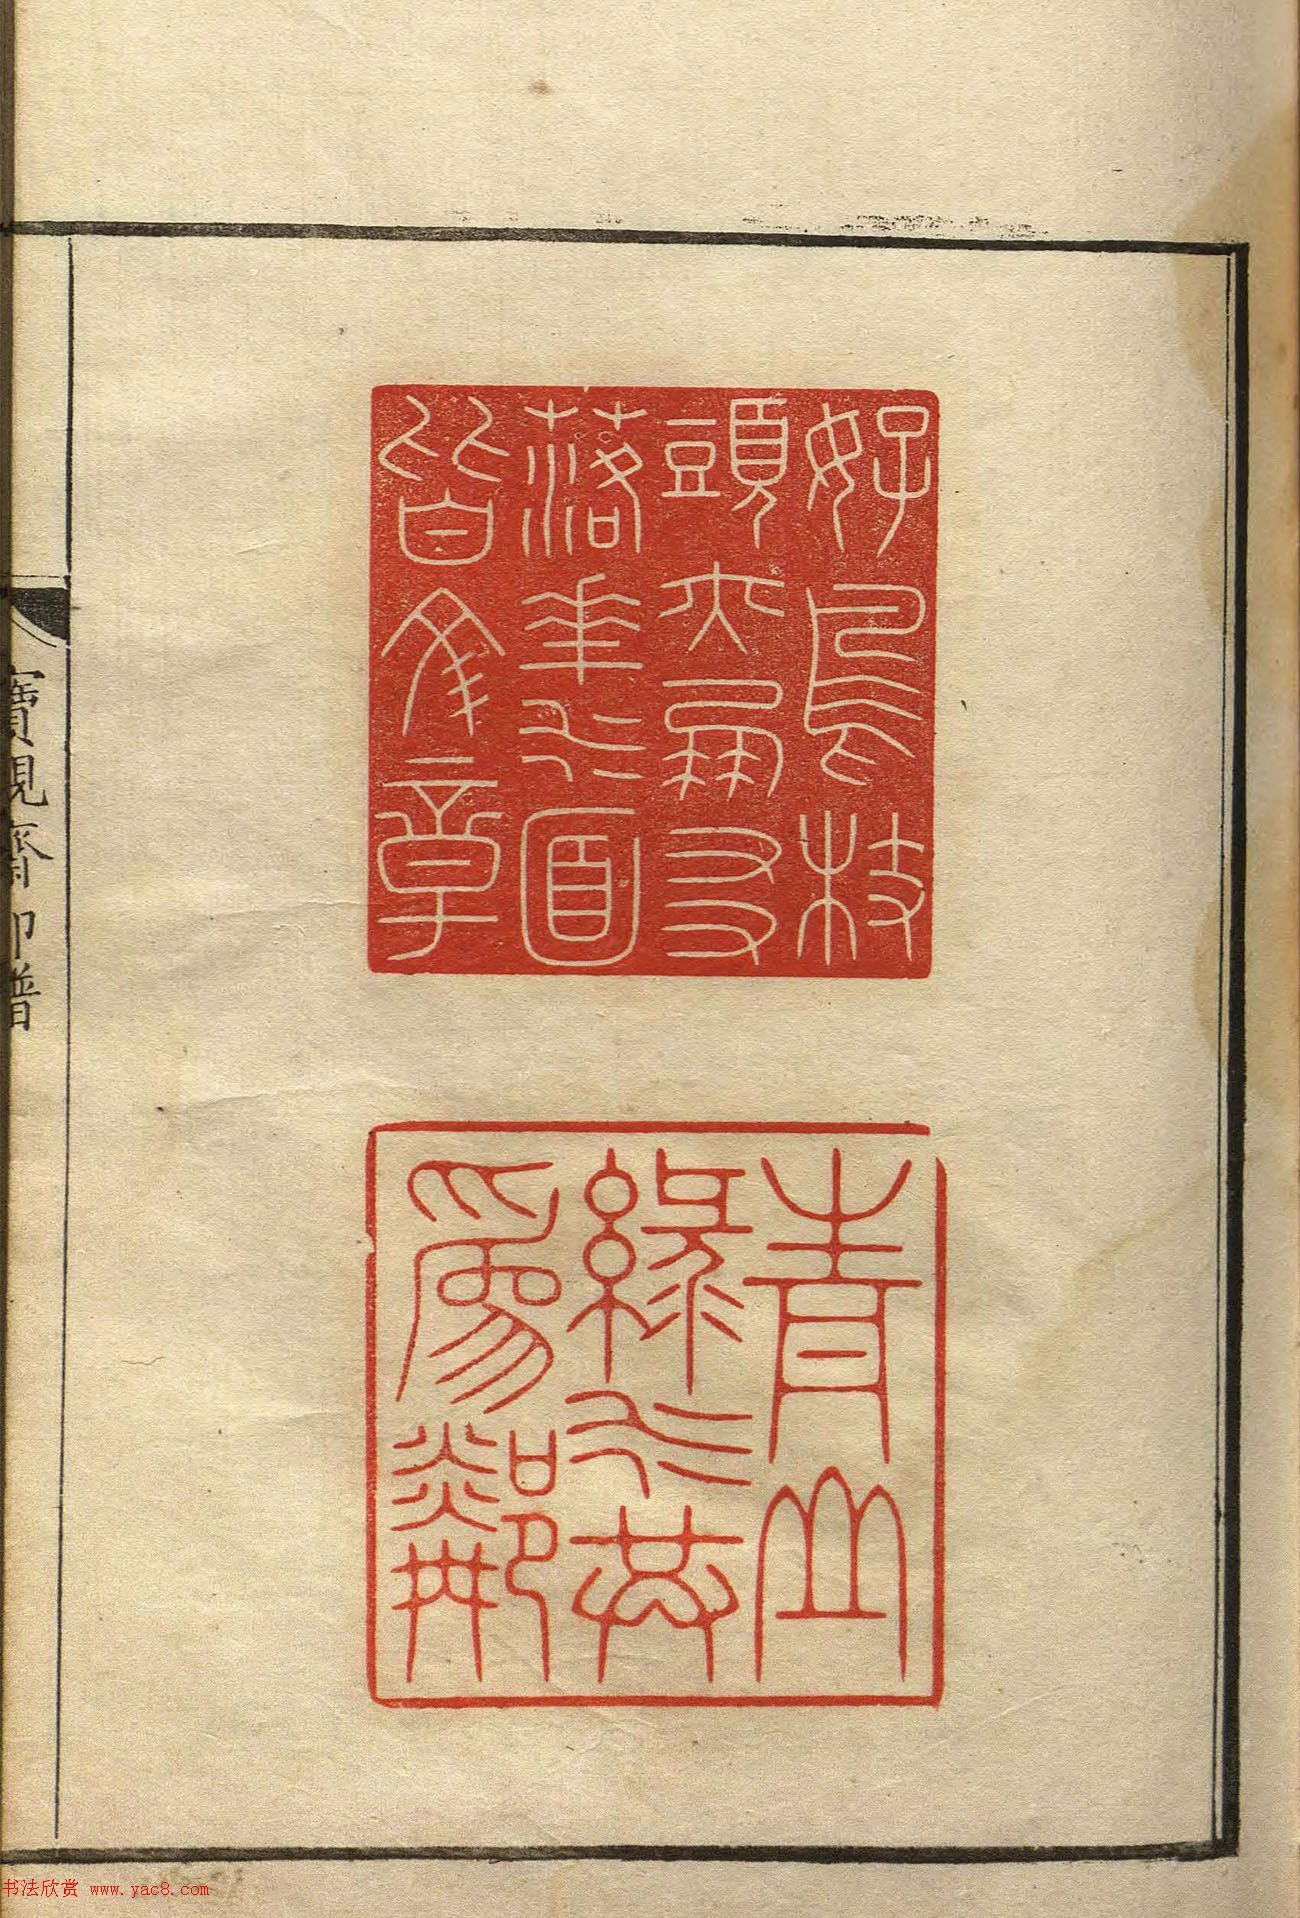 好鳥枝
頭亦朋友
落花水面
皆文章
青山
綠水共
為鄰
寶硯齋印譜
书法欣赏 www.yac8.com